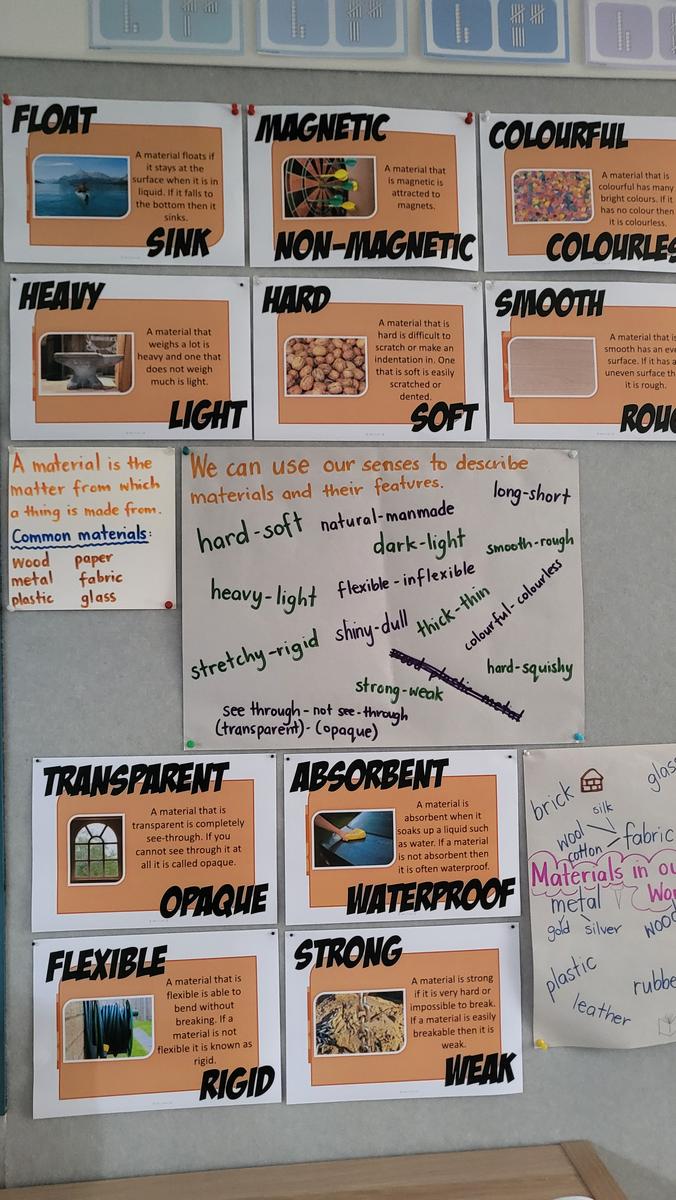 FLOAT
A material floats if
it stays at the
surface when it is in
liquid. If it falls to
the bottom then it
sinks.
SINK
MAGNETIC
A material that
is magnetic is
attracted to
magnets.
NON-MAGNETIC
COLOURFUL
A material that is
colourful has many
bright colours. If it
has no colour then
it is colourless.
COLOURLES
HEAVY
A material that
weighs a lot is
heavy and one that
does not weigh
much is light.
LIGHT
HARD
A material that is
hard is difficult to
scratch or make an
indentation in. One
that is soft is easily
scratched or
dented.
SOFT
SMOOTH
A material that is
smooth has an eve
surface. If it has a
uneven surface th
it is rough.
ROUG
A material is the
matter from which
a thing is made from.
Common materials:
wood paper
metal fabric
plastic glass
We can use our senses to describe
materials and their features.
long-short
hard-soft
natural-manmade
dark-light
smooth-rough
heavy-light
flexible-inflexible
thick-thin
colourful-colourless
stretchy-rigid
shiny-dull
wood-plastic-metal
hard-squishy
strong-weak
see through - not see-through
(transparent) - (opaque)
TRANSPARENT
A material that is
transparent is completely
see-through. If you
cannot see through it at
all it is called opaque.
OPAQUE
ABSORBENT
A material is
absorbent when it
soaks up a liquid such
as water. If a material
is not absorbent then
it is often waterproof.
WATERPROOF
FLEXIBLE
A material that is
flexible is able to
bend without
breaking. If a
material is not
flexible it is known as
rigid.
RIGID
STRONG
A material is strong
if it is very hard or
impossible to break.
If a material is easily
breakable then it is
weak.
WEAK
brick
glass
silk
wool
cotton
fabric
Materials in ou
Wor
metal
gold silver
wood
plastic
rubbe
leather